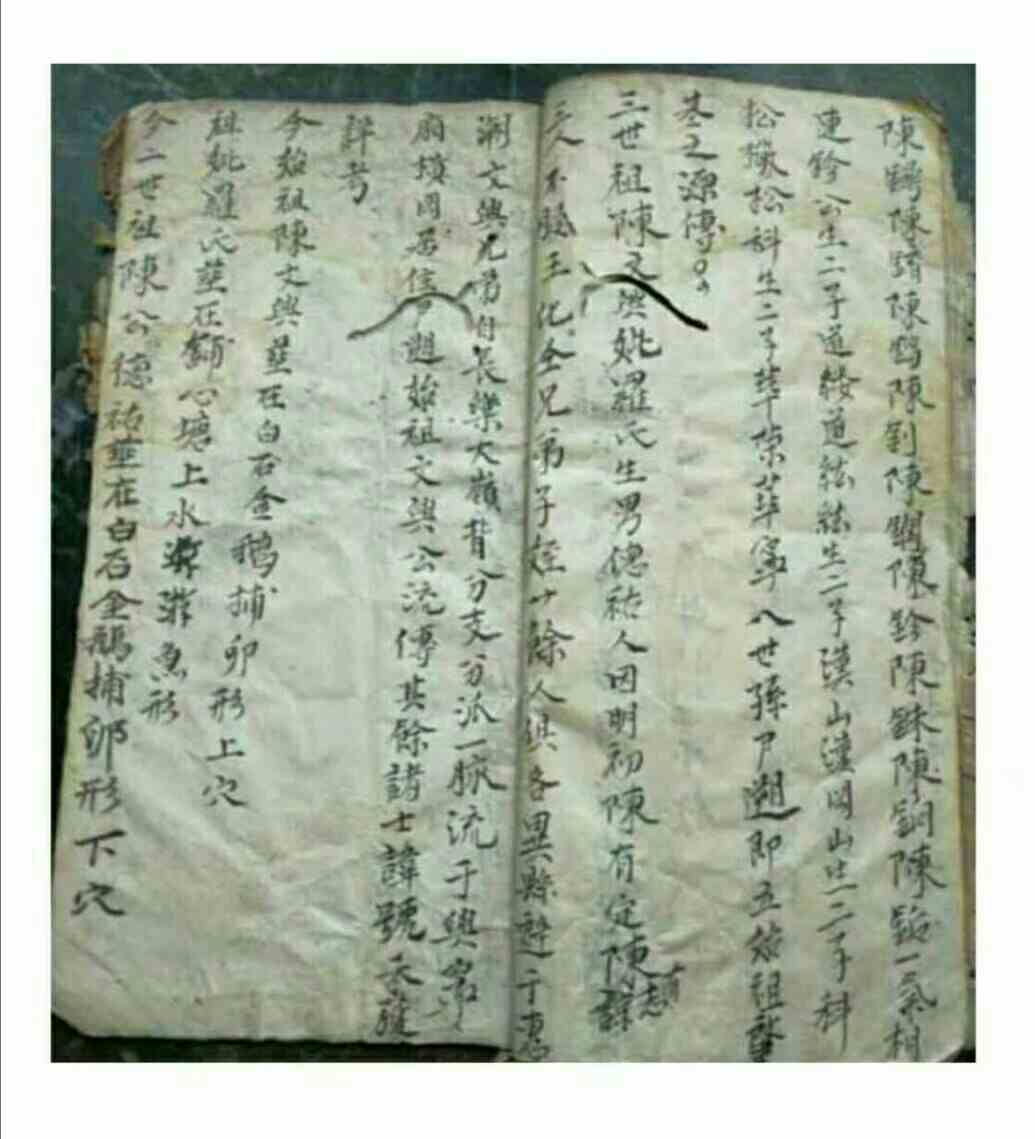 陳陳陳陳釗陳陳鈴陳銖陳銅陳一氣相
連鈴公生二子道綾道絃絃生二子漢山漢岡山生二子科
松松科生二子華榮華寧八世孫即五始祖肇
基之源傳
三世祖陳文興妣羅氏生男德祐人因明初陳有定陳有諒志
三人不服王化全兄弟子侄十餘人俱各異縣避于惠
潮文興兄弟自長樂大嶺背分支分派一脉流于興寧
岡居住始祖文興公流傳其餘諸士諱號未獲
詳考
今始祖陳文興葬在白石金鵝捕卵形上穴
祖妣羅氏葬在鋪心塘上水游魚形
今二世祖陳公德祐葬在白石金鵝捕卵形下穴